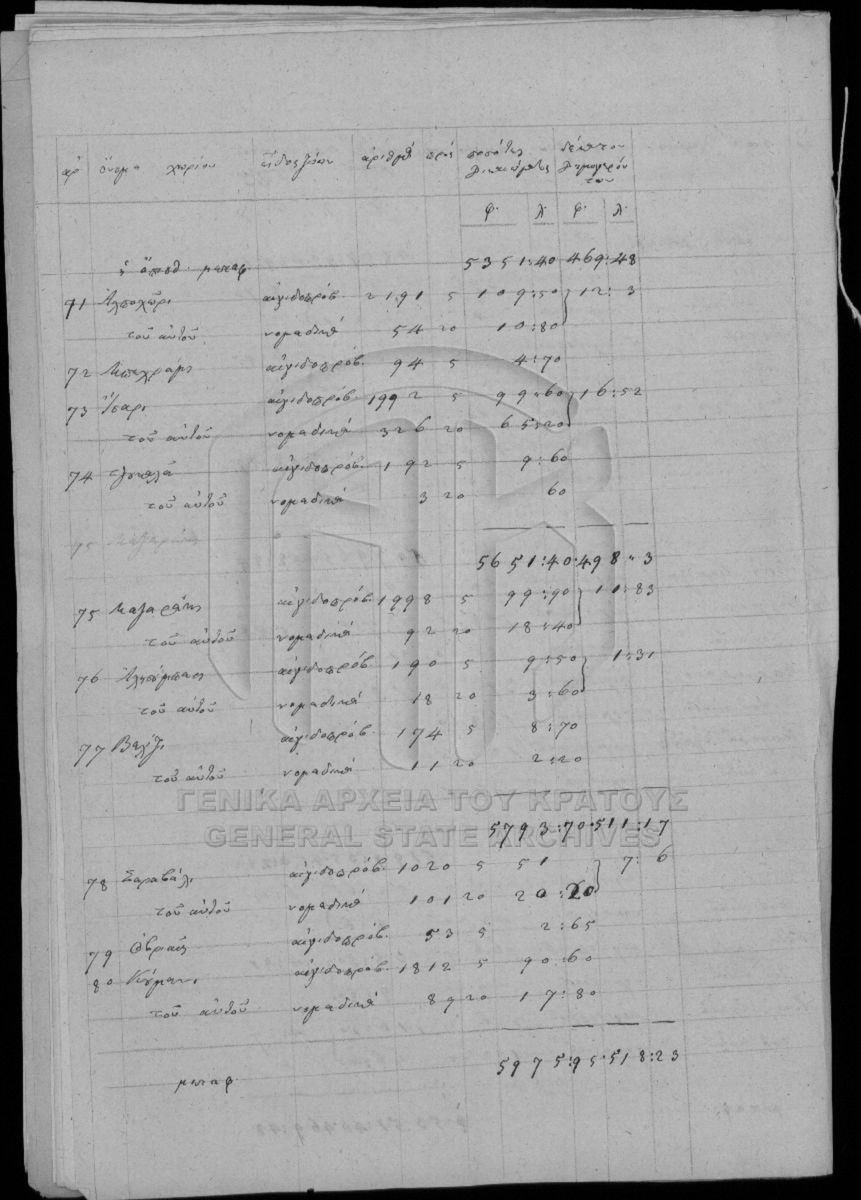 αρ ὄνομα χωρίου εἶδος ζώων ἀριθμὸς πρὸς ποσότης δικαιώματος δέκατον δημογερόντων
φ. λ. φ. λ.
ἡ ὄπισθ. μεταφ. 5351:40 469:48
71 Ἁλποχῶρι αἰγιδοπρόβ. 2191 5 109:50 12:3
τοῦ αὐτοῦ νομαδικὰ 54 20 10:80
72 Μπεχράμι αἰγιδοπρόβ. 94 5 4:70
73 Ἴσαρι αἰγιδοπρόβ. 1992 5 99:60 16:52
τοῦ αὐτοῦ νομαδικὰ 326 20 65:20
74 αἰγιδοπρόβ. 192 5 9:60
τοῦ αὐτοῦ νομαδικὰ 3 20 60
75 Μαζαράκι
5651:40 498"3
75 Μαζαράκι αἰγιδοπρόβ. 1998 5 99:90 11:83
τοῦ αὐτοῦ νομαδικὰ 92 20 18:40
76 αἰγιδοπρόβ. 190 5 9:50 1:31
τοῦ αὐτοῦ νομαδικὰ 18 20 3:60
77 Βελίζι αἰγιδοπρόβ. 174 5 8:70
τοῦ αὐτοῦ νομαδικὰ 11 20 2:20
ΓΕΝΙΚΑ ΑΡΧΕΙΑ ΤΟΥ ΚΡΑΤΟΥΣ
GENERAL STATE ARCHIVES
5793:70 511:17
78 Σαραβάλι αἰγιδοπρόβ. 1020 5 51 7:6
τοῦ αὐτοῦ νομαδικὰ 101 20 20:20
79 Ὀβριακὴ αἰγιδοπρόβ. 53 5 2:65
80 Κούμανι αἰγιδοπρόβ. 1812 5 90:60
τοῦ αὐτοῦ νομαδικὰ 89 20 17:80
5975:95 518:23
μεταφ.